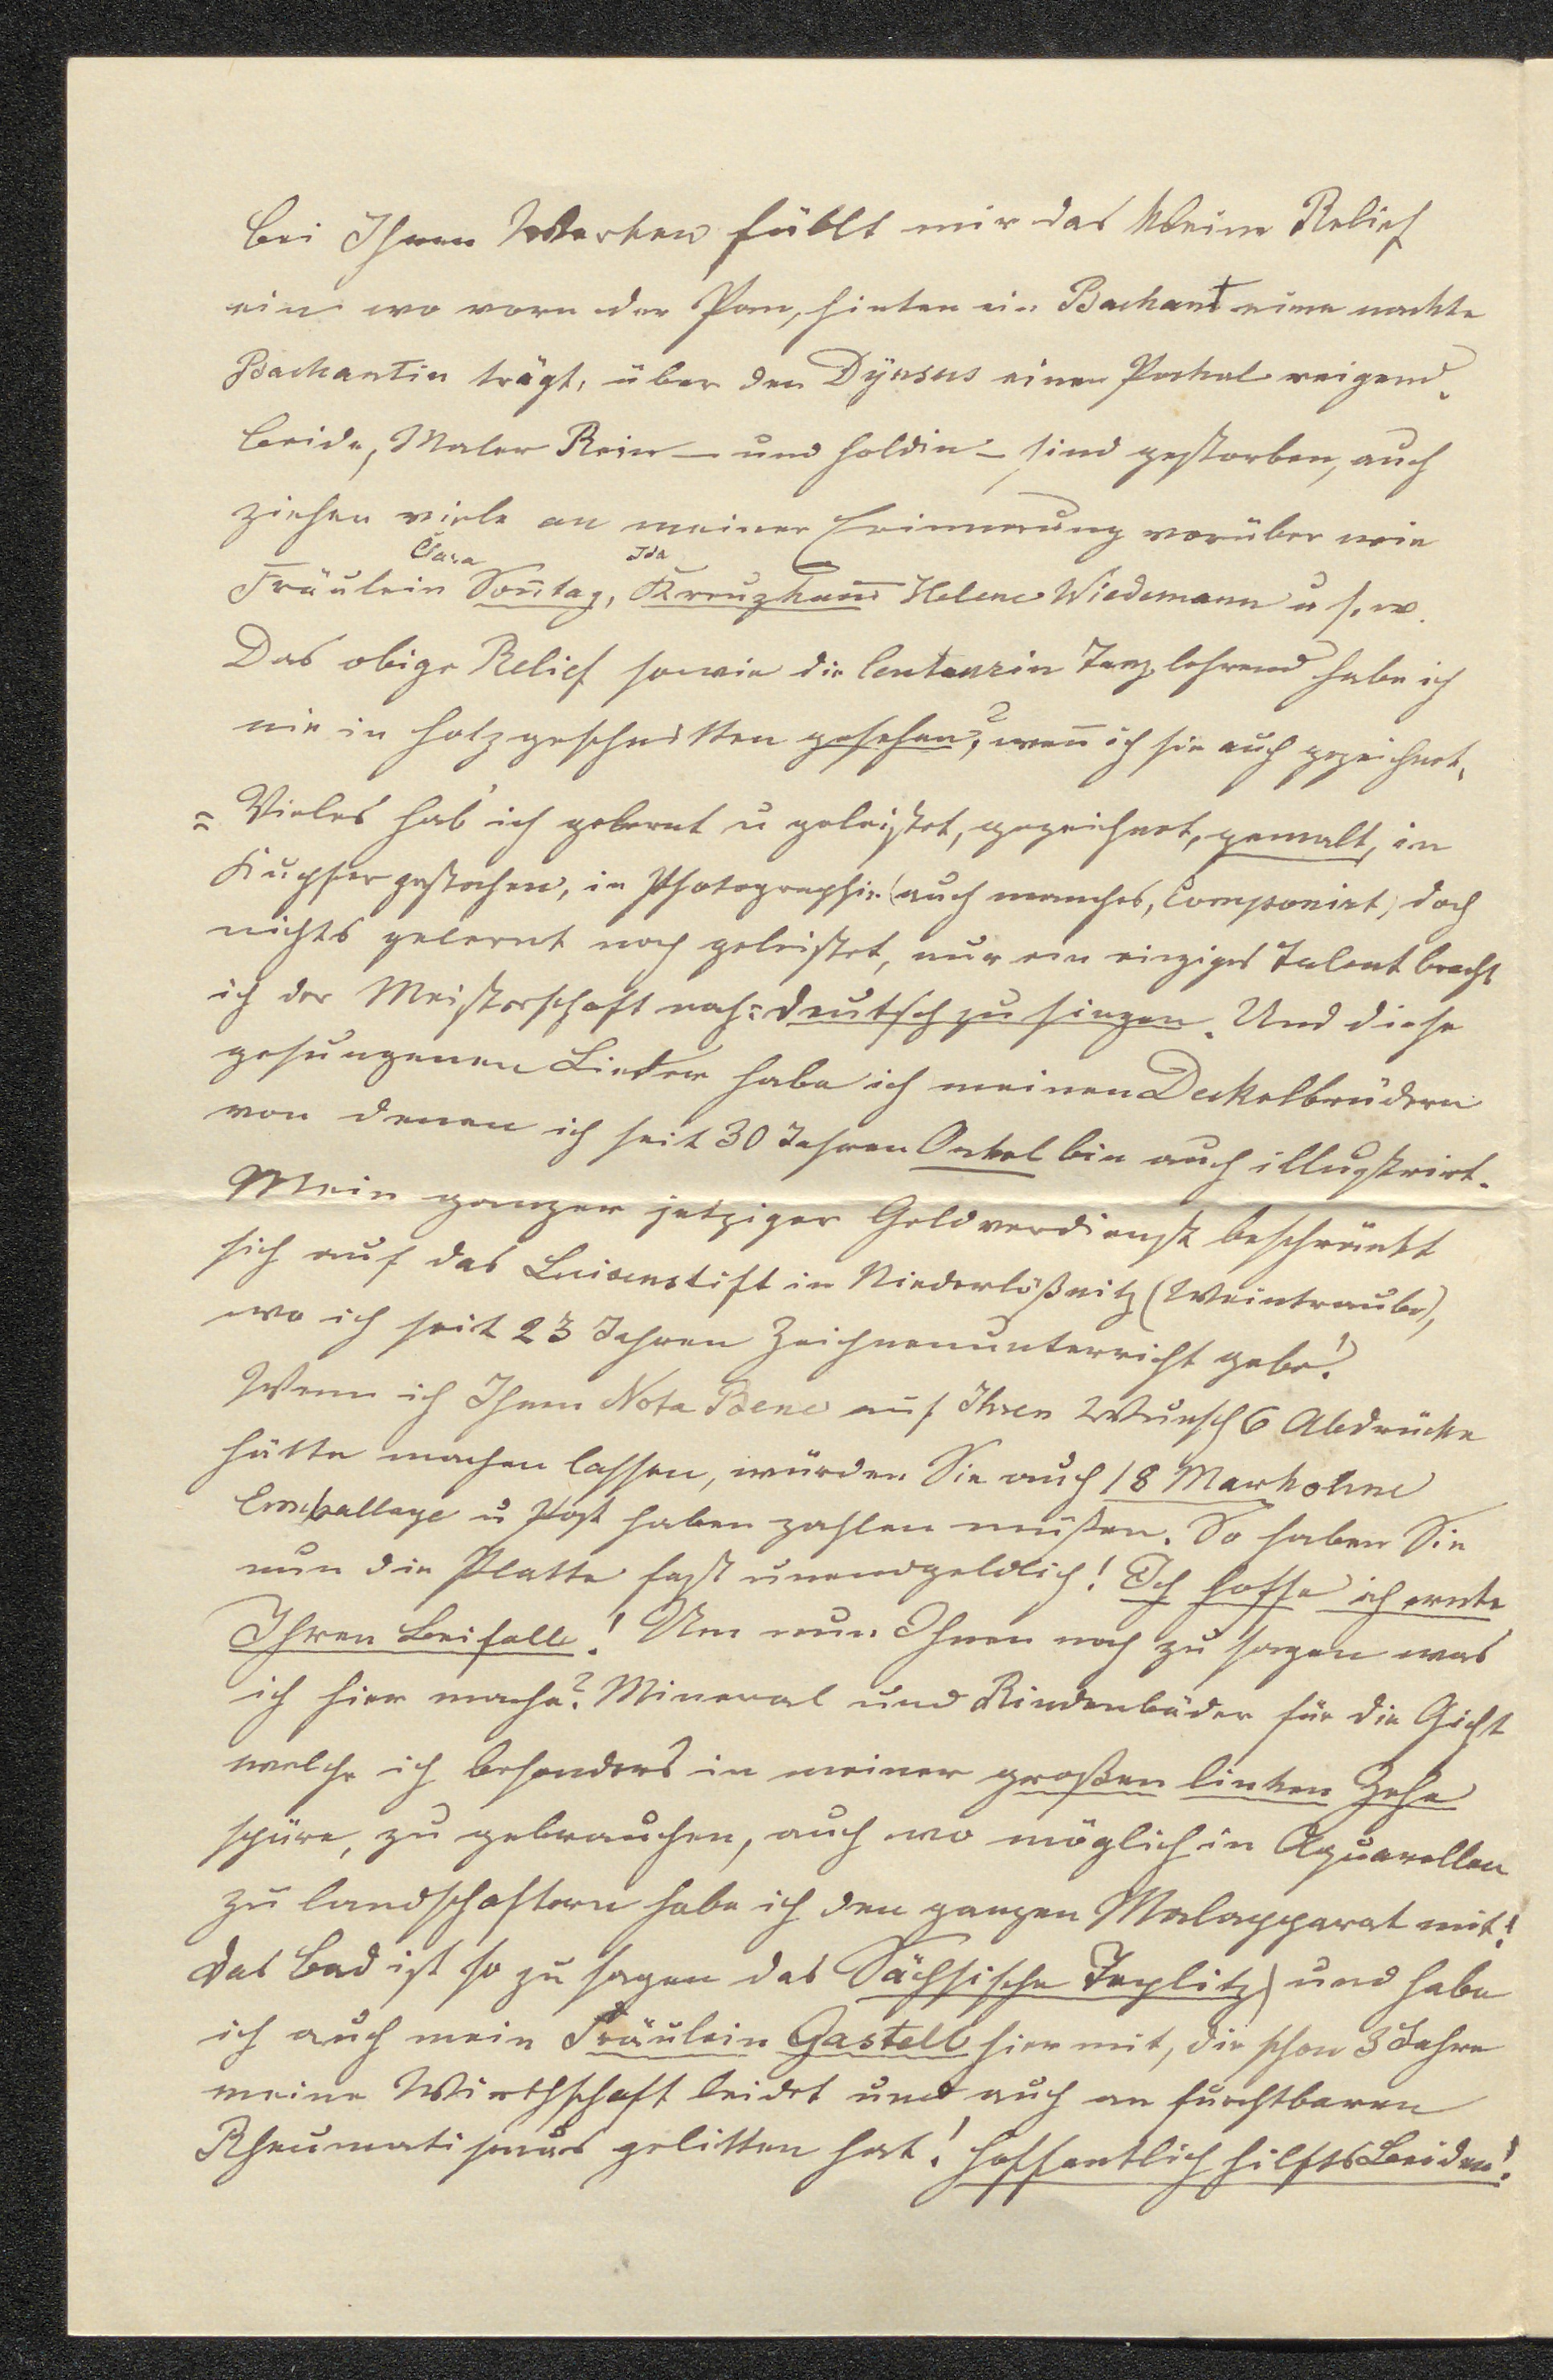 Bei Ihren Werken fällt mir das kleine Relief
ein wo vorn der Pan, hinten ein Bachant eine nackte
Bachantin trägt, über den Dÿrsus einen Pockal neigend.
Beide, Maler Rein – und Holdin – sind gestorben, auch
ziehen viele an meiner Erinnerung vorüber wie
Clara Ida
Fräulein Son̄tag, Kreuzkam̄ Helene Wiedemann u s. w.
Das obige Relief sowie die Centaurin Tanz lehrend habe ich
nie in Holz geschnitten gesehen?, wen̄ ich sie auch gezeichnet.
= Vieles hab' ich gelernt u geleistet, gezeichnet, gemalt, in
Kupfer gestochen, in Photographie (auch manches, Componirt, doch
nichts gelernt noch geleistet, nur ein einziges Talent bracht
ich der Meisterschaft nah: deutsch zu singen. Und diese
gesungenen Lieder habe ich meinen Deckelbrüdern
von denen ich seit 30 Jahren Onkel bin auch illustrirt.
Mein ganzer jetziger Geldverdienst beschränkt
sich auf das Luisenstift in Niederlößnitz (Weintraube),
wo ich seit 23 Jahren Zeichnenunterricht gebe!
Wenn ich Ihnen Nota Bene auf Ihren Wunsch 6 Abdrücke
hätte machen lassen, würden Sie auch 18 Mark ohne
Emballage u Post haben zahlen müßen. So haben Sie
nun die Platte fast unendgeldlich! Ich hoffe ich ernte
Ihren Beifall! Um nun Ihnen noch zu sagen was
ich hier mache? Mineral und Rindenbäder für die Gicht
welche ich besonders in meiner großen linken Zehe
spüre, zu gebrauchen, auch wo möglich in Aquarellen
zu landschaftern habe ich den ganzen Malapparat mit!
Das Bad ist so zu sagen das Sächsische Teplitz, und habe
ich auch mein Fräulein Gastell hier mit, die schon 3 Jahre
meine Wirthschaft leidet und auch an furchtbaren
Rheumatismus gelitten hat! Hoffentlich hilfts Beiden!